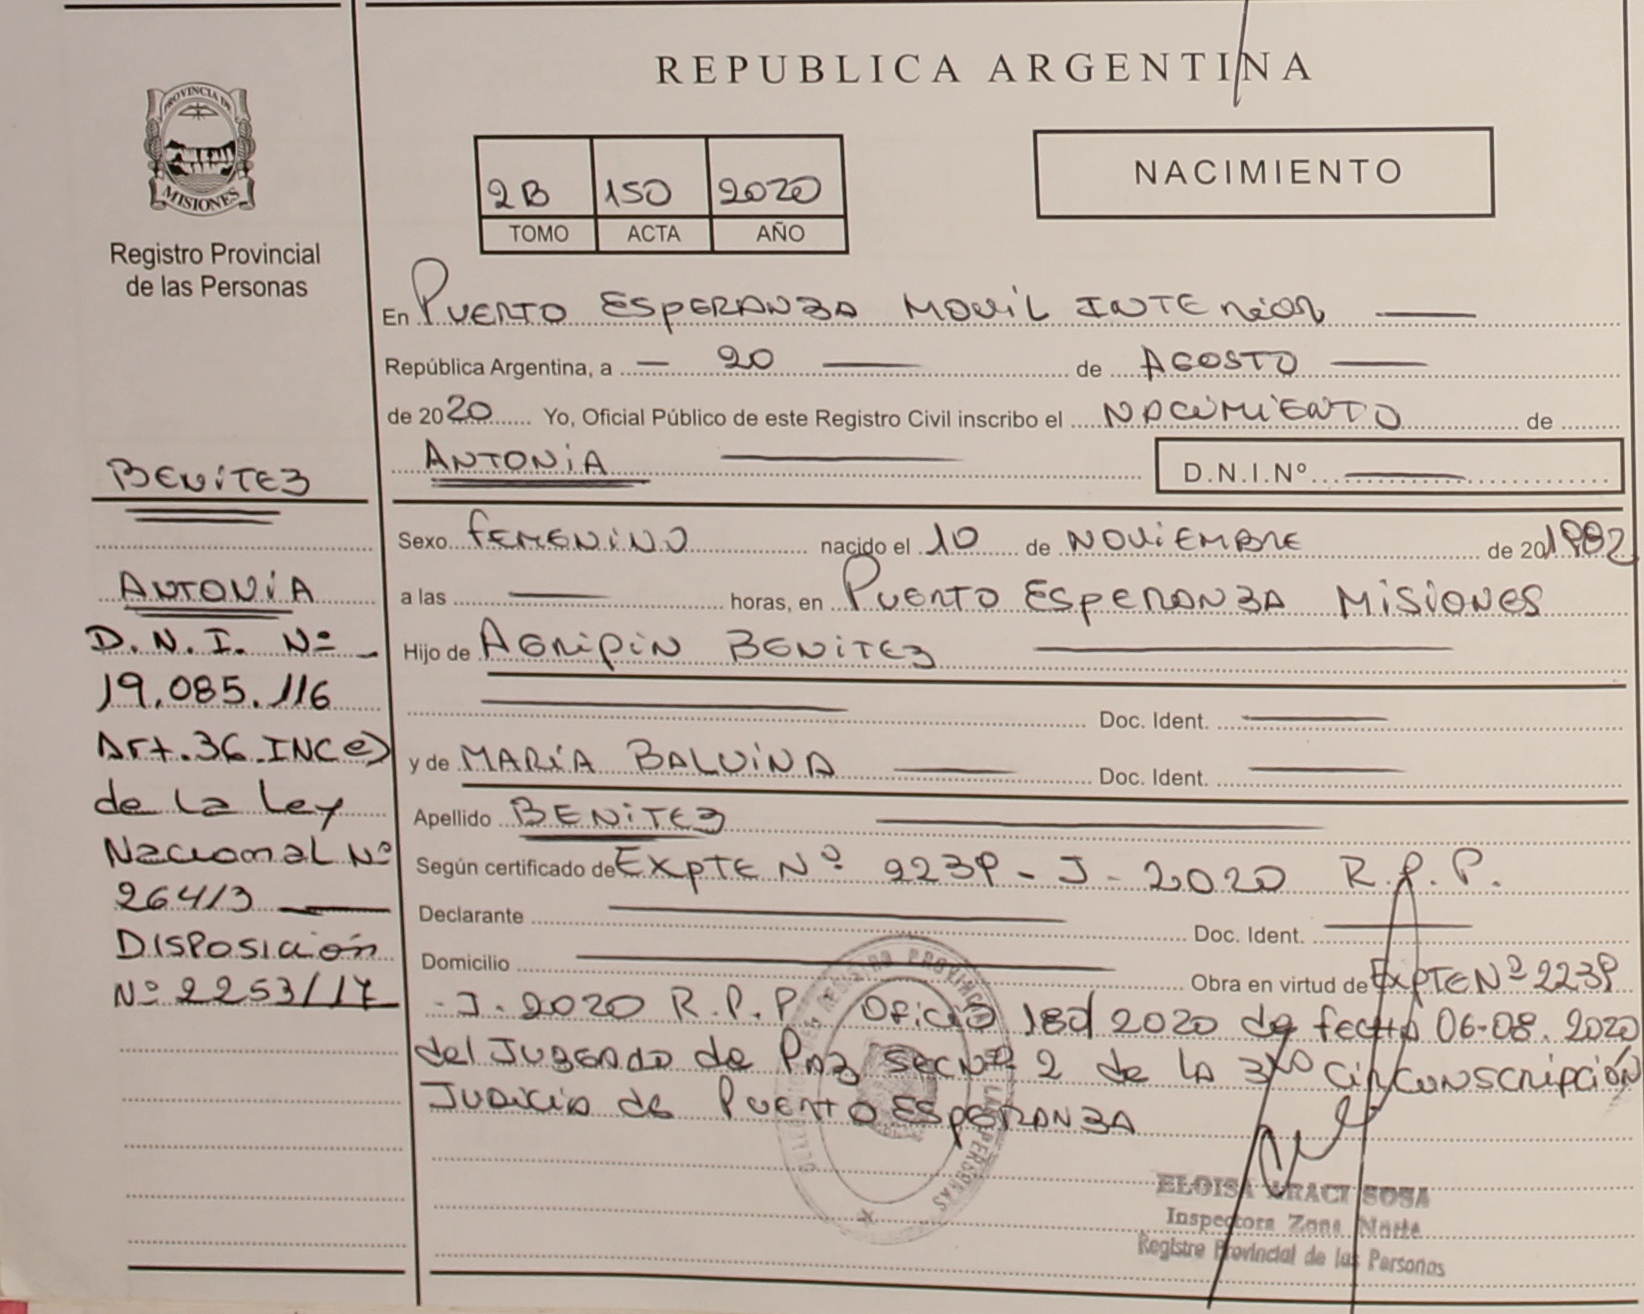 REPUBLICA ARGENTINA
PROVINCIA DE
MISIONES
Registro Provincial
de las Personas
2B 150 2020
TOMO ACTA AÑO
NACIMIENTO
En PUERTO ESPERANZA MOVIL INTERIOR
República Argentina, a 20 de AGOSTO
de 2020 Yo, Oficial Público de este Registro Civil inscribo el NACIMIENTO de
ANTONIA D.N.I.Nº
Sexo FEMENINO nacido el 10 de NOVIEMBRE de 20 1982
a las horas, en PUERTO ESPERANZA MISIONES
Hijo de AGRIPIN BENITEZ
Doc. Ident.
y de MARÍA BALVINA Doc. Ident.
Apellido BENITEZ
Según certificado de EXPTE Nº 2239-J-2020 R.P.P.
Declarante Doc. Ident.
Domicilio Obra en virtud de EXPTE Nº 2239
-J-2020 R.P.P. Oficio 2020 de fecha 06-08-2020
del JUZGADO de PAZ SEC Nº 2 de LA 3ra CIRCUNSCRIPCIÓN
JUDICIA de PUERTO ESPERANZA
BENITEZ
ANTONIA
D.N.I. Nº
19.085.116
Art. 36 INC e)
de La Ley
Nacional Nº
26413
DISPOSICIÓN
Nº 2253/17
REGISTRO PROVINCIAL DE LAS PERSONAS
ELOISA ARACI SOSA
Inspectora Zona Norte
Registro Provincial de las Personas